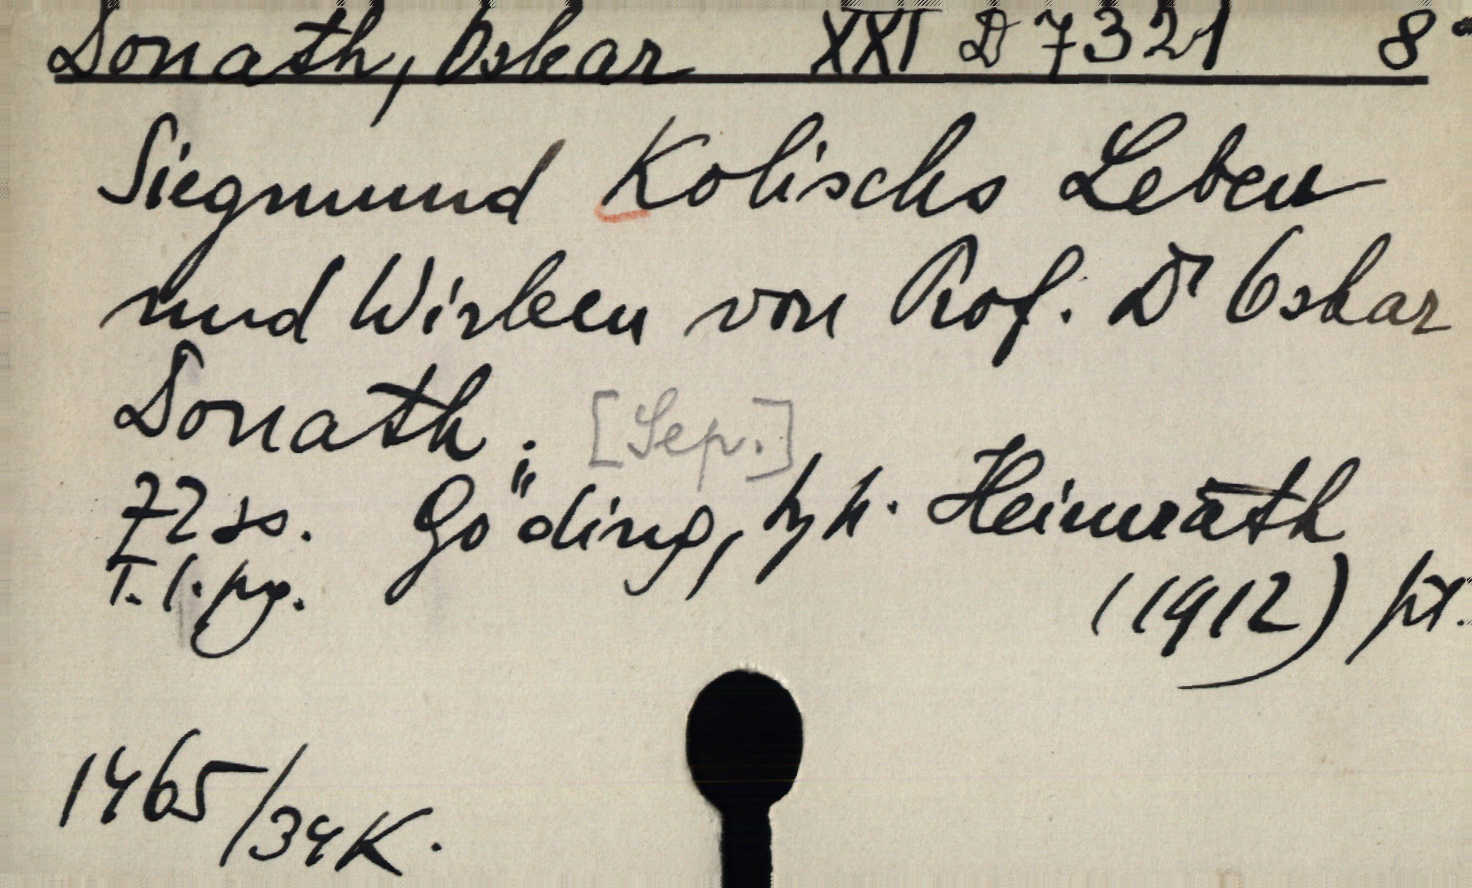 Donath, Oskar XXI D 7321 8°
Siegmund Kolischs Leben
und Wirken von Prof. Dr Oskar
Donath. [Sep.]
72 ss. Göding, Heimrath
T. l. pg. (1912) pt.
1465/34 K.